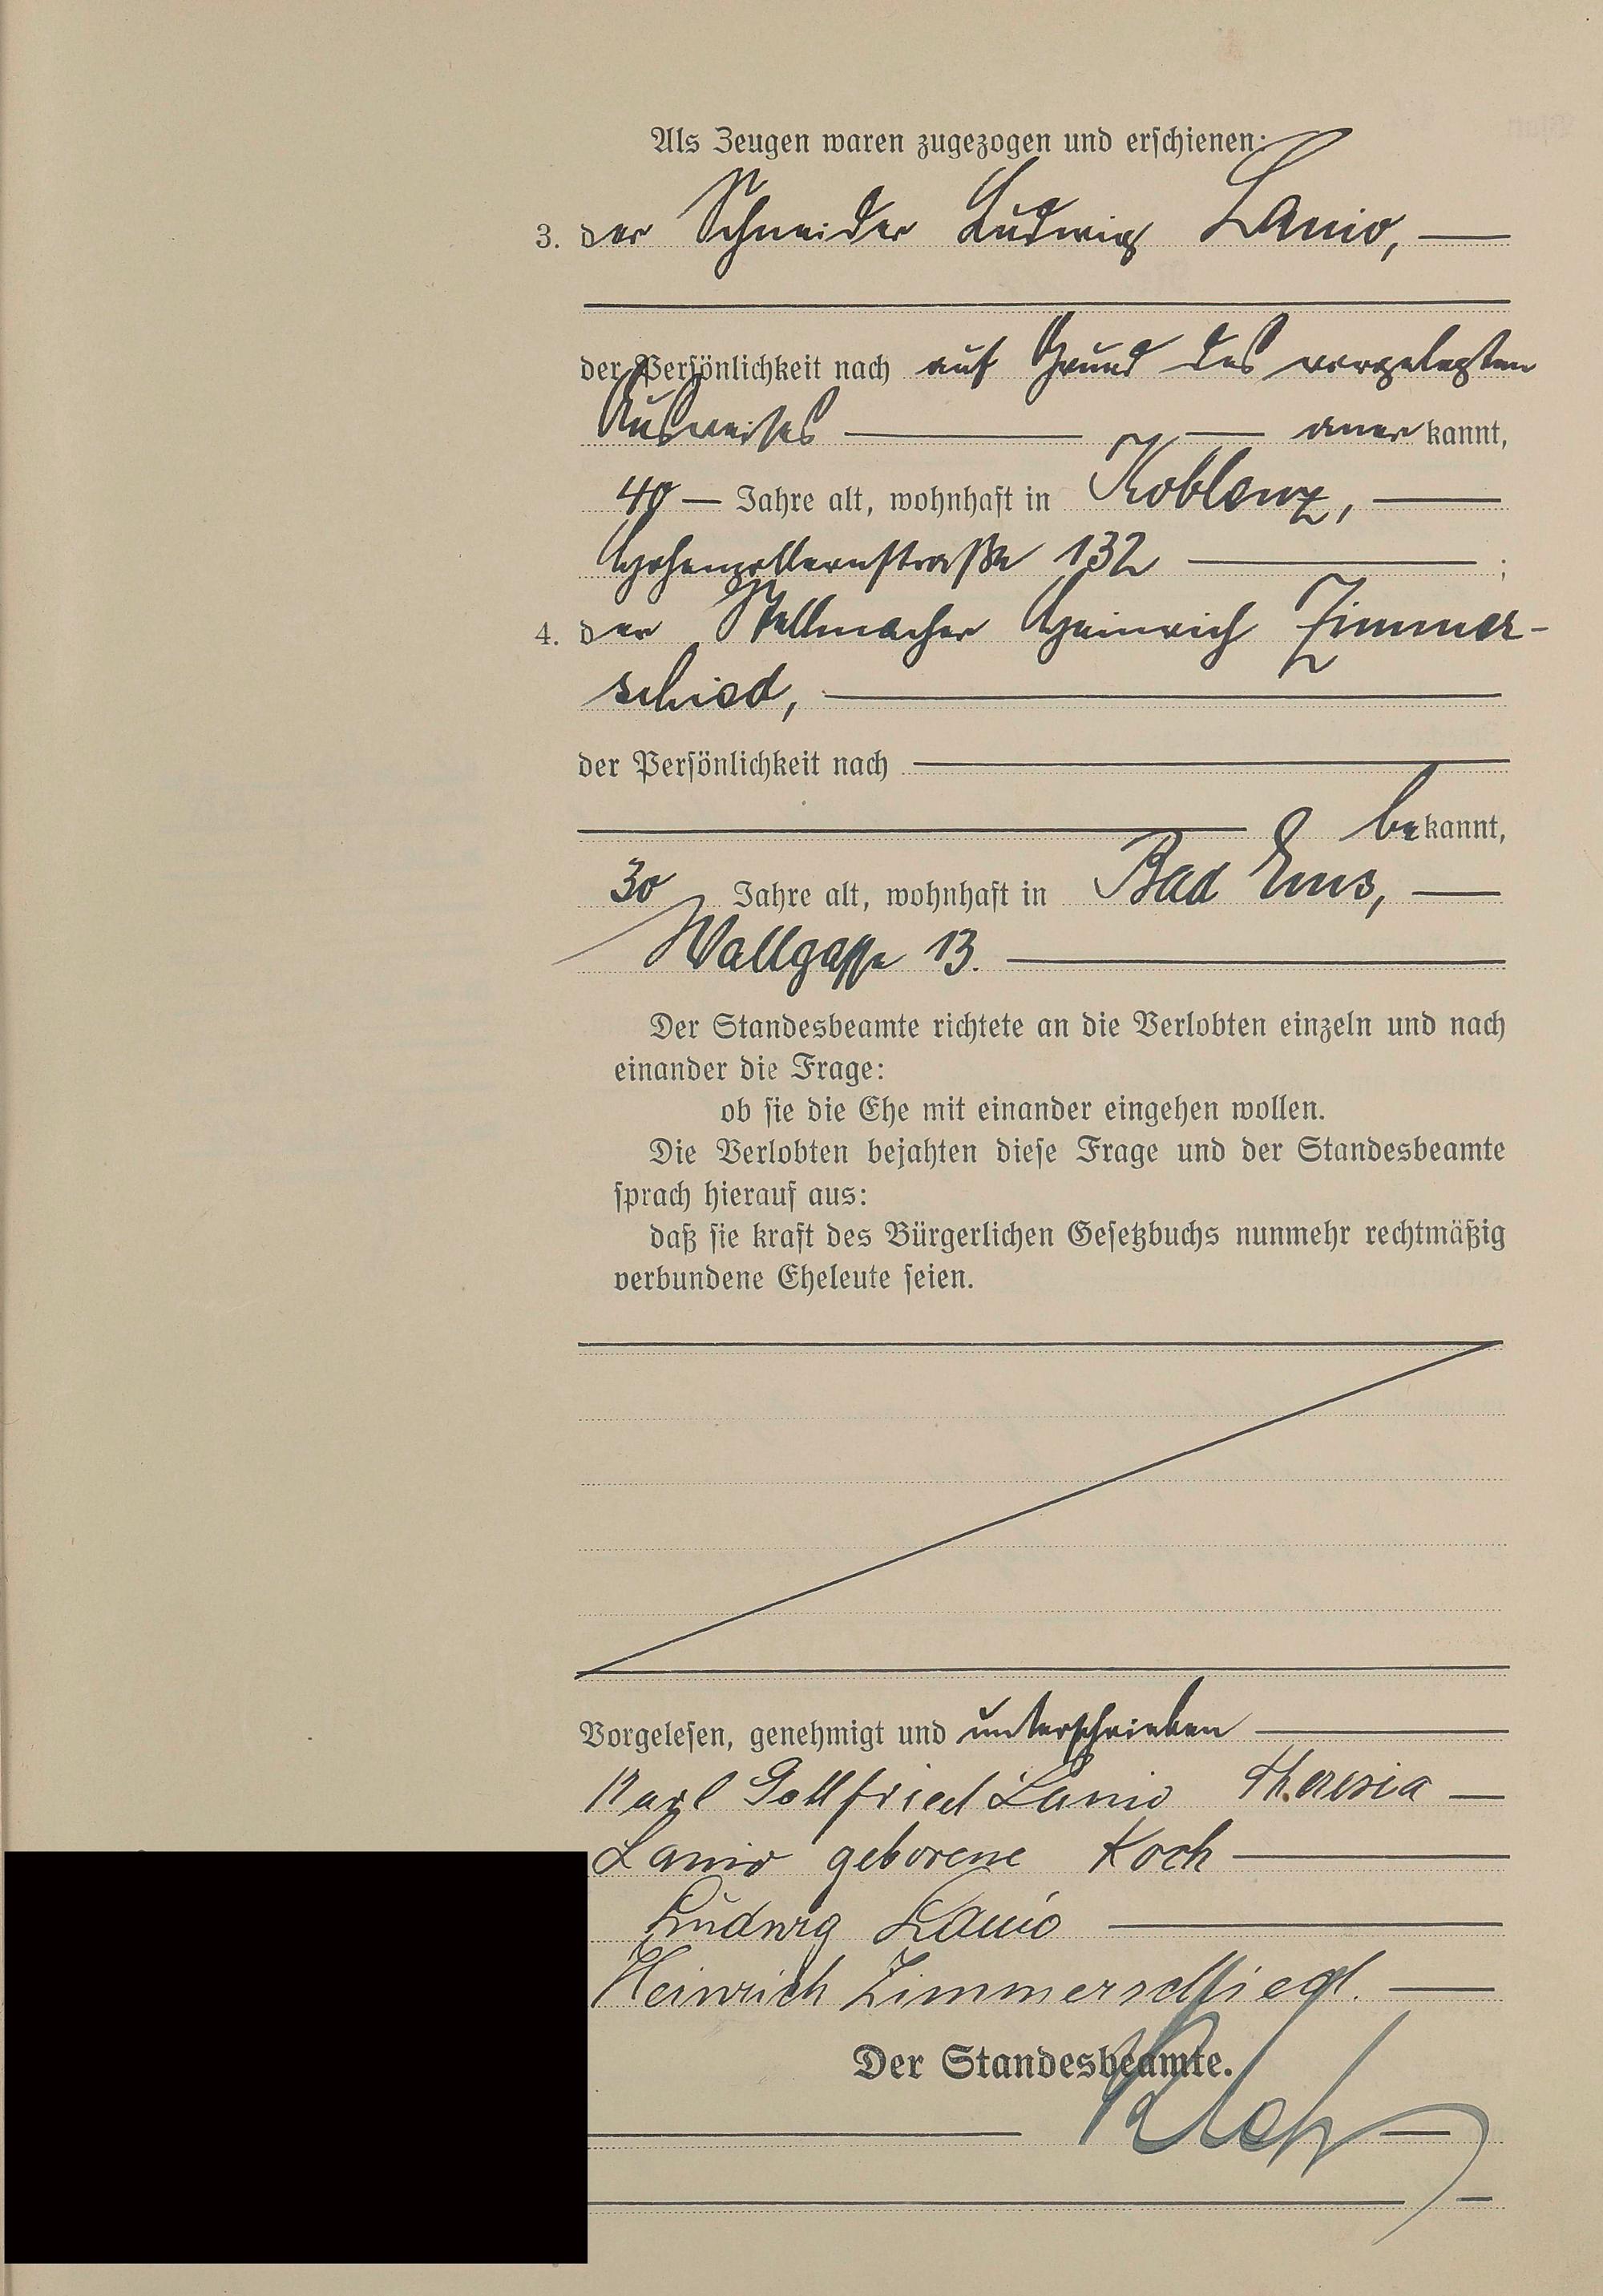 Als Zeugen waren zugezogen und erschienen:
3. der Schneider Ludwig Lanio,
der Persönlichkeit nach auf Grund des vorgelegten
Ausweises anerkannt,
40 Jahre alt, wohnhaft in Koblenz,
Hohenzollernstraße 132 ;
4. der Stellmacher Heinrich Zimmer-
schied,
der Persönlichkeit nach
bekannt,
30 Jahre alt, wohnhaft in Bad Ems,
Wallgasse 13.
Der Standesbeamte richtete an die Verlobten einzeln und nach
einander die Frage:
ob sie die Ehe mit einander eingehen wollen.
Die Verlobten bejahten diese Frage und der Standesbeamte
sprach hierauf aus:
daß sie kraft des Bürgerlichen Gesetzbuchs nunmehr rechtmäßig
verbundene Eheleute seien.
Vorgelesen, genehmigt und unterschrieben
Karl Gottfried Lanio Theresia
Lanio geborene Koch
Ludwig Lanio
Heinrich Zimmerschied.
Der Standesbeamte.